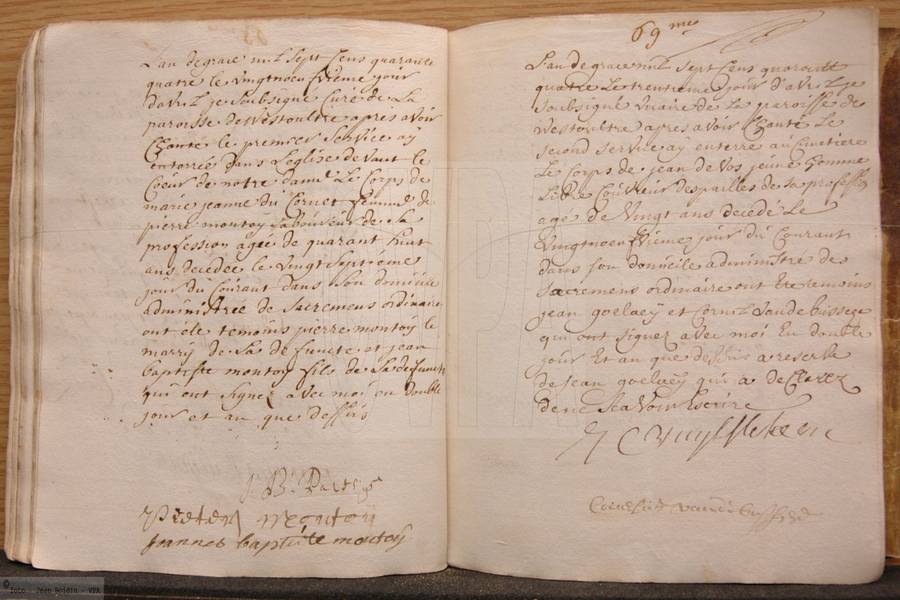 L'an de grace mil sept Cens quarante
quatre le vingtneufvieme jour
davril je Soubsigné Curé de La
paroisse de Westoultre apres avoir
Chante le premier Service ay
enterrée dans L'eglise devant le
Coeur de notre dame Le Corps de
marie jeanne du Cornet femme de
pierre montoy Laboureur de Sa
profession agée de quarant huit
ans decedée le vingt septiemes
jour du Courant dans Son domicile
administrée de Sacremens ordinaire
ont été temoins pierre montoy le
marry de La defuncte et jean
baptiste montoy fils de La defuncte
qui ont Signez avec moi en double
jour et an que dessus
J. B.
Pieter montoy
Joannes baptiste montoy
69 me
L'an de grace mil sept Cens quarante
quatre Le trentieme jour d'avril je
Soubsigné vicaire de La paroisse de
Westoultre apres avoir Chanté Le
second service ay enterré au Cimetiere
Le Corps de jean de Vos jeune homme
Libre Couvreur des pailles de Sa profession
agé de Vingt ans decedé Le
Vingtneufvieme jour du Courant
dans son domicile administre des
Sacremens ordinaire ont ete temoins
jean goelaey et Corniz Vandebussche
qui ont signez avec moi En double
jour Et an que dessus a reserve
de jean goelaey qui a declarez
de ne Scavoir Escrire
Cornelius vanden